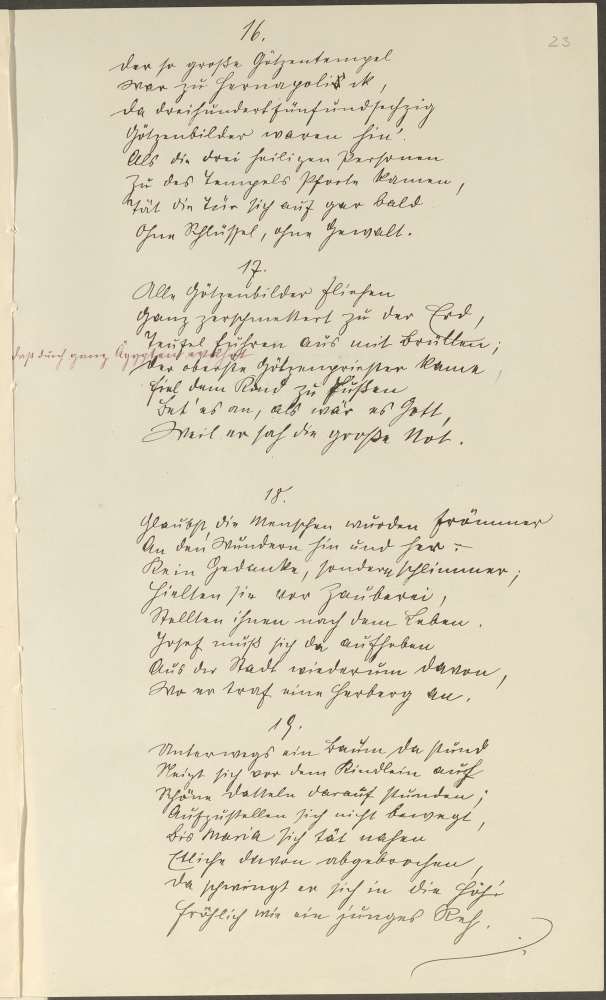 23
16.
Der so große Götzentempel
War zu Hernapolis ik,
Da dreihundertfünfundsechzig
Götzenbilder waren hin.
Als die drei heiligen Personen
Zu des Tempels Pforte kamen,
Tät die Tür sich auf gar bald
Ohne Schlüssel, ohne Gewalt.
17.
Alle Götzenbilder fliehen
Ganz zerschmettert zu der Erd,
Teufel fuhren aus mit Brüllen;
daß durch ganz Ägypten
Der oberste Götzenpriester kame,
Fiel dem Kind zu Füßen
Bet' es an, als wär es Gott,
Weil er sah die große Not.
18.
Glaubst, die Menschen wurden frömmer
An den Wundern hin und her –
Kein Gedanke, sondern schlimmer;
Hielten sie vor Zauberei,
Stellten ihnen nach dem Leben.
Josef muß sich da aufheben
Aus der Stadt wiederum davon,
Wo er traf eine Herberg an.
19.
Unterwegs ein Baum da stund
Neigt sich vor dem Kindlein auf
Schöne Datteln darauf stunden;
Aufzustellen sich nicht bewegt,
Bis Maria sich tät nahen
Etliche davon abgebrochen,
Da schwingt er sich in die Höh'
Fröhlich wie ein junges Reh.